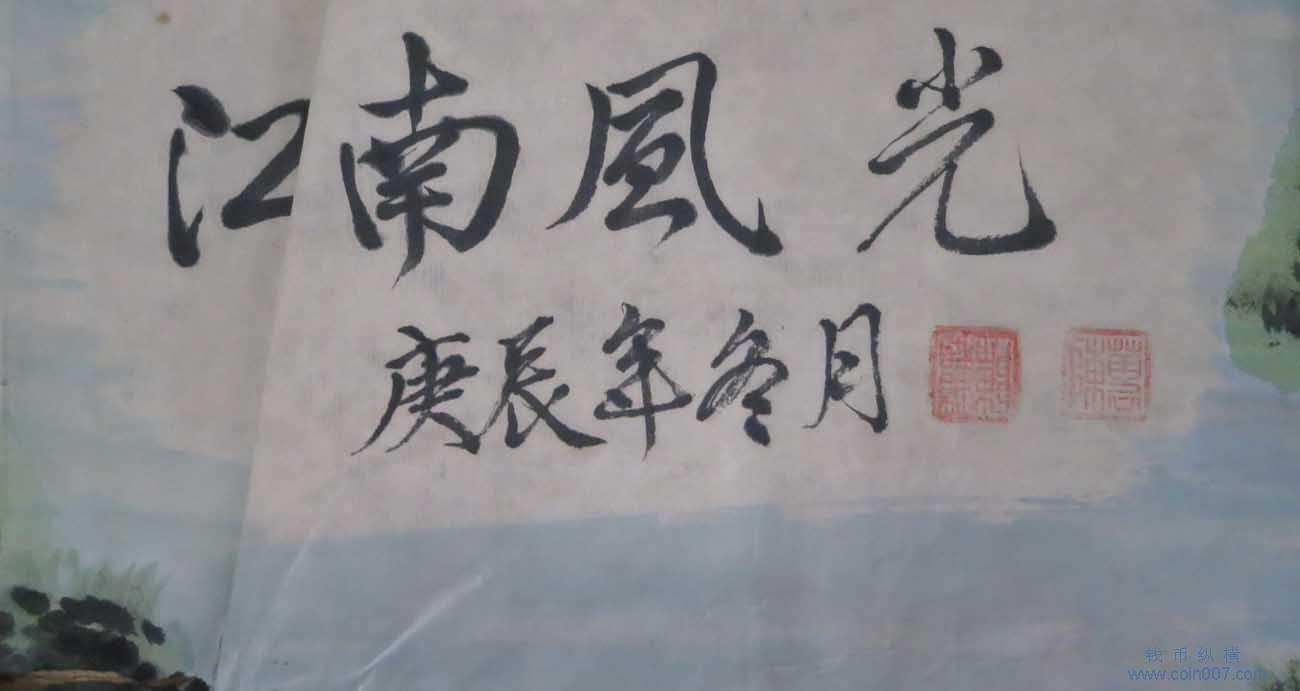 江南風光
庚辰年冬月
钱币纵横
www.coin007.com